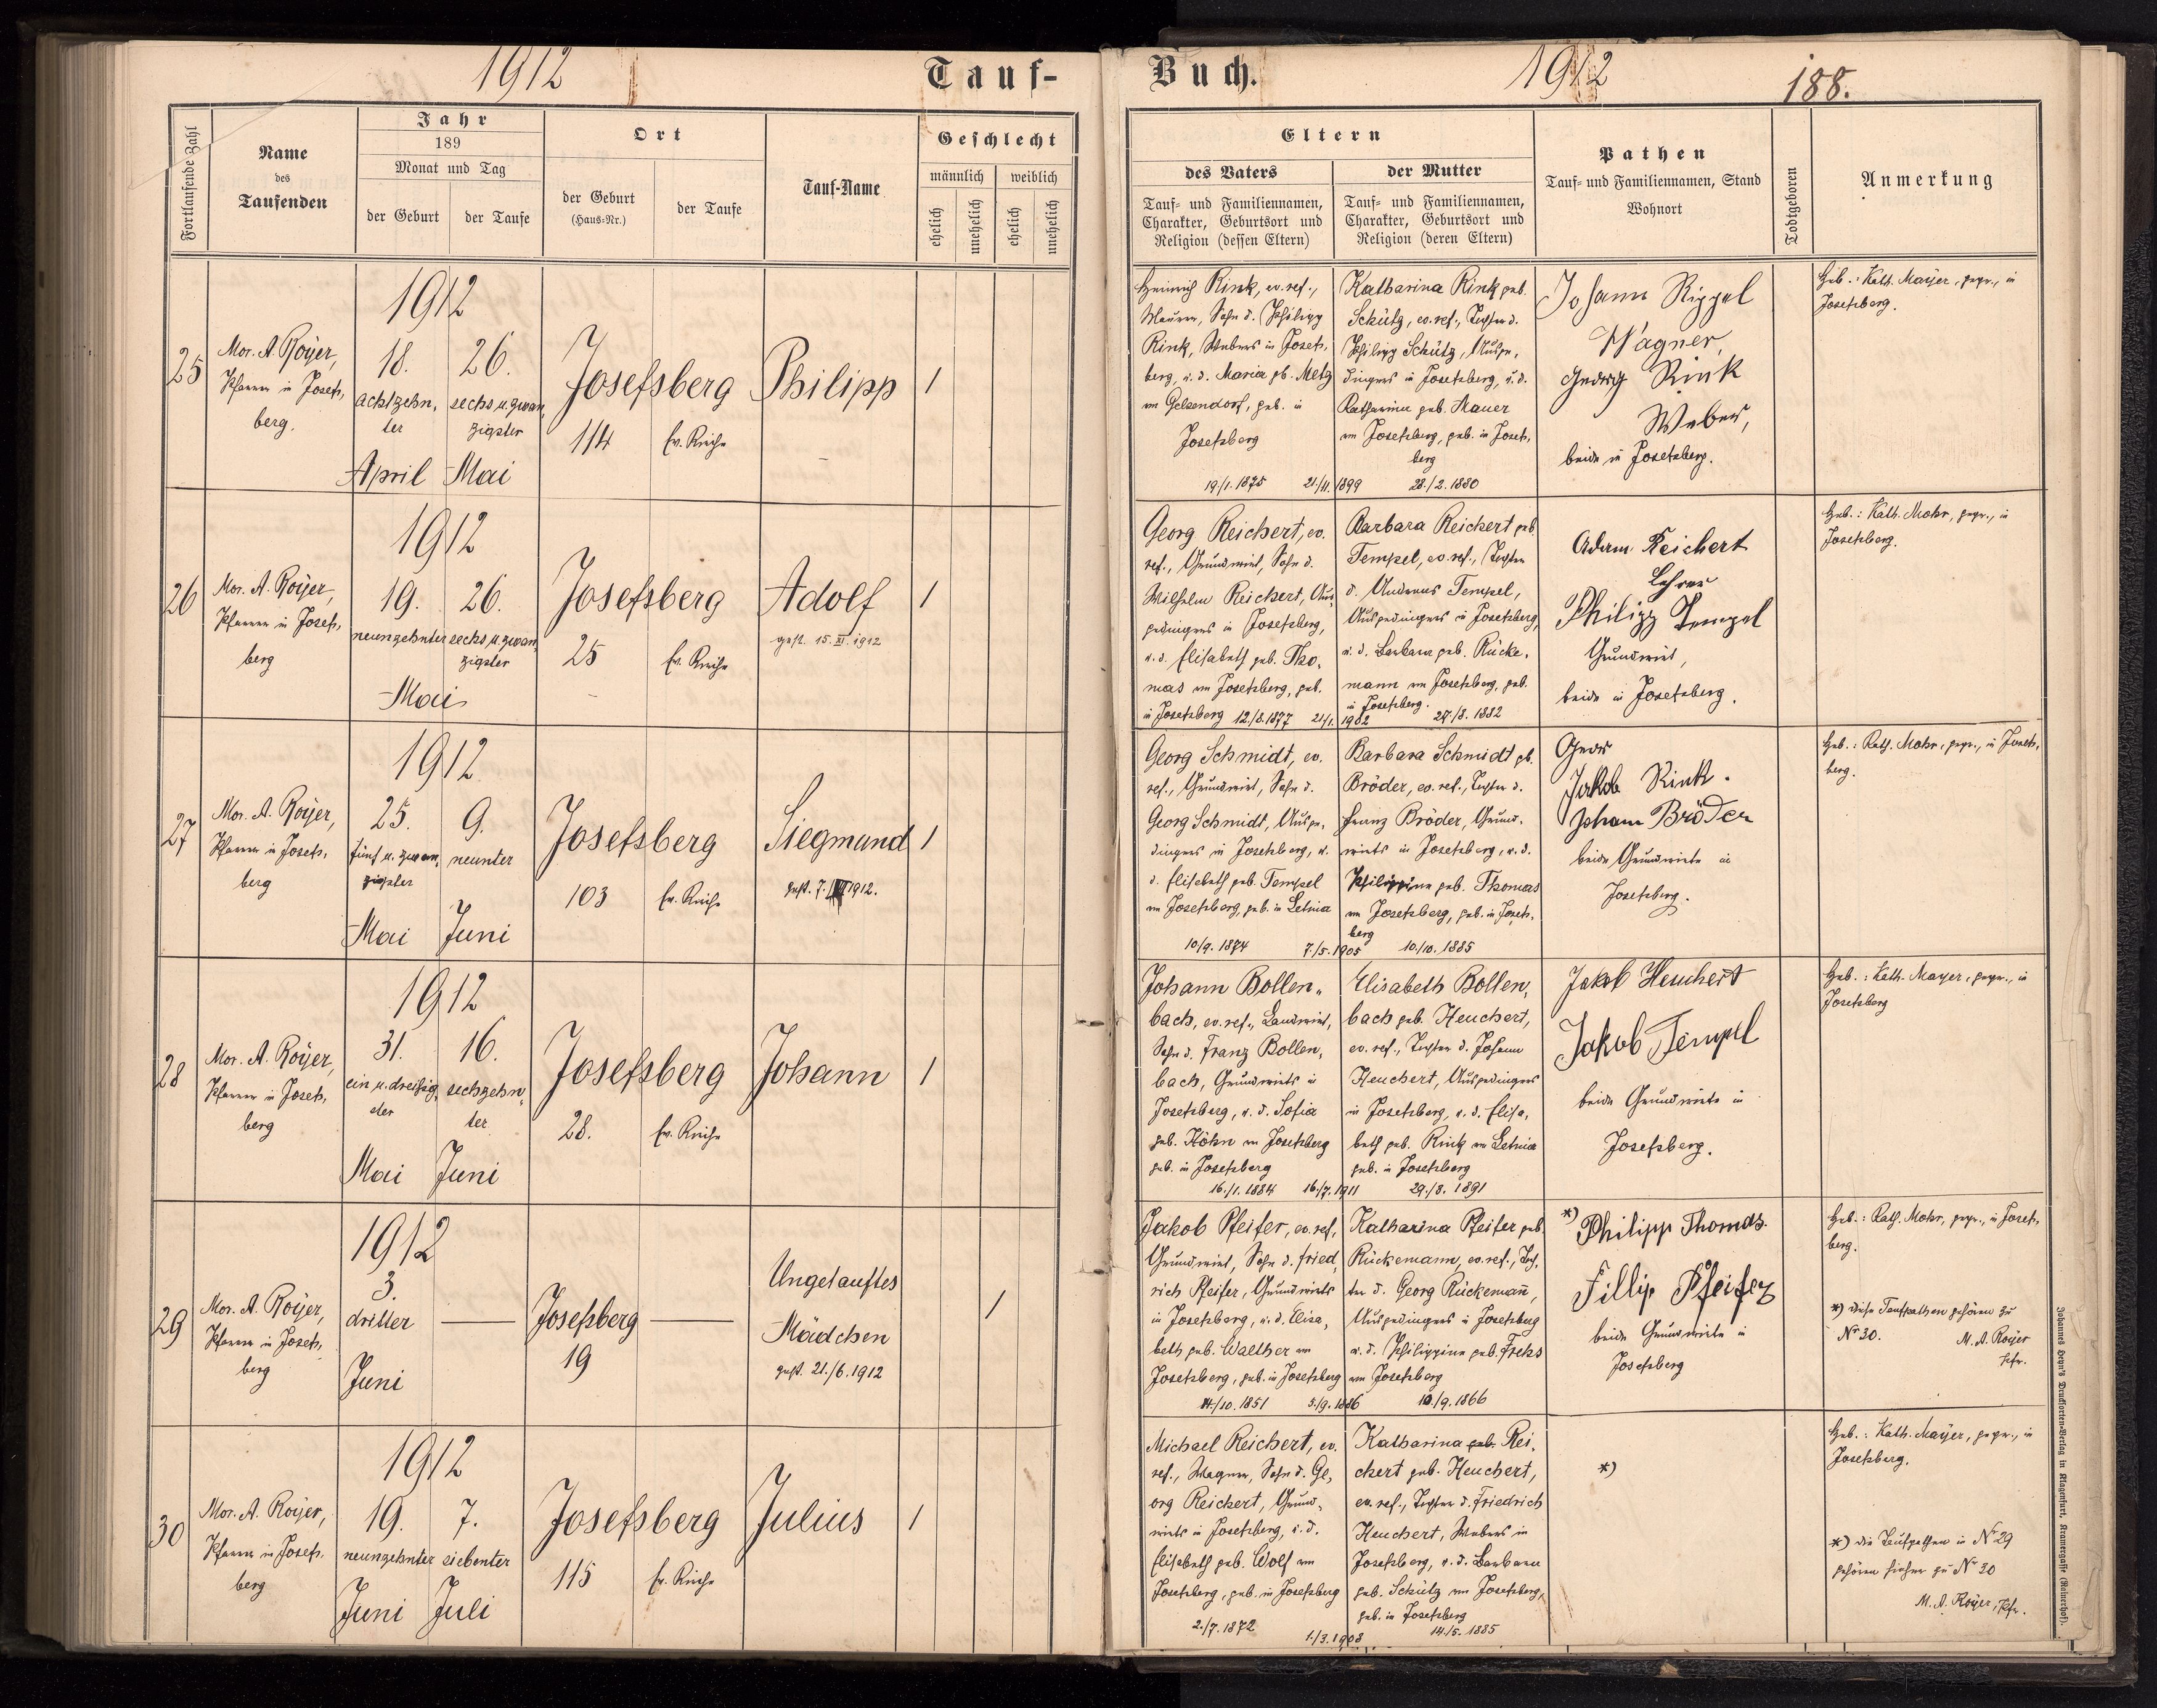 1912
Tauf-
Buch.
1912
188.
Fortlaufende Zahl
Name
des
Taufenden
Jahr
189
Monat und Tag
der Geburt
der Taufe
Ort
der Geburt
(Haus-Nr.)
der Taufe
Tauf-Name
Geschlecht
männlich
weiblich
ehelich
unehelich
ehelich
unehelich
Eltern
des Vaters
Tauf- und Familiennamen,
Charakter, Geburtsort und
Religion (dessen Eltern)
der Mutter
Tauf- und Familiennamen,
Charakter, Geburtsort und
Religion (deren Eltern)
Pathen
Tauf- und Familiennamen, Stand
Wohnort
Todtgeboren
Anmerkung
25
Mor. A. Royer,
Pfarrer in Josefs-
berg.
1912
18.
achtzehn-
ter
April
26.
sechs u. zwan-
zigster
Mai
Josefsberg
114
Ev. Kirche
Philipp
1
Heinrich Rink, ev. ref.,
Maurer, Sohn d. Philipp
Rink, Webers in Josefs-
berg, u. d. Maria gb. Metz
von Gelsendorf, geb. in
Josefsberg
19/1. 1875
21/11. 1899
Katharina Rink geb.
Schütz, ev. ref., Tochter d.
Philipp Schütz, Ausge-
dingers in Josefsberg, u. d.
Katharina geb. Mauer
von Josefsberg, geb. in Josefs-
berg
28./2. 1880
Johann Rippel
Wagner,
Georg Rink
Weber,
beide in Josefsberg.
Heb.: Kath. Mayer, gepr., in
Josefsberg.
26
Mor. A. Royer,
Pfarrer in Josefs-
berg
1912
19.
neunzehnter
26.
sechs u. zwan-
zigster
Mai
Josefsberg
25
Ev. Kirche
Adolf
gest. 15. XI. 1912
1
Georg Reichert, ev.
ref., Grundwirt, Sohn d.
Wilhelm Reichert, Aus-
gedingers in Josefsberg,
u. d. Elisabeth geb. Tho-
mas von Josefsberg, geb.
in Josefsberg 12/8. 1877
21/1. 1902
Barbara Reichert geb.
Tempel, ev. ref., Tochter
d. Andreas Tempel,
Ausgedingers in Josefsberg,
u. d. Barbara geb. Rücke-
mann von Josefsberg, geb.
in Josefsberg.
27/8. 1882
Adam Reichert
Lehrer
Philipp Tempel
Grundwirt,
beide in Josefsberg.
Heb.: Kath. Mohr, gepr., in
Josefsberg.
27
Mor. A. Royer,
Pfarrer in Josefs-
berg
1912
25.
fünf u. zwan-
zigster
Mai
9.
neunter
Juni
Josefsberg
103
Ev. Kirche
Siegmund
1
Georg Schmidt, ev.
ref., Grundwirt, Sohn d.
Georg Schmidt, Ausge-
dingers in Josefsberg, u.
d. Elisabeth geb. Tempel
von Josefsberg, geb. in Letnia
10/9. 1874
7./5. 1905
Barbara Schmidt gb.
Bröder, ev. ref., Tochter d.
Franz Bröder, Grund-
wirts in Josefsberg, u. d.
Philippine geb. Thomas
von Josefsberg, geb. in Josefs-
berg
10./10. 1885
Jakob Rink.
Johann Bröder
beide Grundwirte in
Josefsberg.
Heb.: Kath. Mohr, gepr., in Josefs-
berg.
28
Mor. A. Royer,
Pfarrer in Josefs-
berg
1912
31.
ein u. dreißig-
ster
Mai
16.
sechzehn-
ter
Juni
Josefsberg
28.
Ev. Kirche
Johann
1
Johann Bollen-
bach, ev. ref., Landwirt,
Sohn d. Franz Bollen-
bach, Grundwirts in
Josefsberg, u. d. Sofia
geb. Höhn von Josefsberg
geb. in Josefsberg
16./1. 1884
16./7. 1911
Elisabeth Bollen-
bach geb. Heuchert,
ev. ref., Tochter d. Johann
Heuchert, Ausgedingers
in Josefsberg, u. d. Elisa-
beth geb. Rink von Letnia
geb. in Josefsberg
29./8. 1891
Jakob Heuchert
Jakob Tempel
beide Grundwirte in
Josefsberg.
Heb.: Kath. Mayer, gepr., in
Josefsberg
29
Mor. A. Royer,
Pfarrer in Josefs-
berg
1912
3.
dritter
Juni
Josefsberg
19
Ungetauftes
Mädchen
gest. 21./6. 1912
1
Jakob Pfeifer, ev. ref.,
Grundwirt, Sohn d. Fried-
rich Pfeifer, Grundwirts
in Josefsberg, u. d. Elisa-
beth geb. Walther von
Josefsberg, geb. in Josefsberg
/10. 1851
5./9. 1886
Katharina Pfeifer geb.
Rückemann, ev. ref., Toch-
ter d. Georg Rückemann,
Ausgedingers in Josefsberg
u. d. Philippine geb. Frehs
von Josefsberg
10./9. 1866
*)
Philipp Thomas.
Fillip Pfeifer
beide Grundwirte in
Josefsberg
Heb.: Kath. Mohr, gepr., in Josefs-
berg.
*) diese Taufpathen gehören zu
No 30.
M. A. Royer
Pfr.
30
Mor. A. Royer,
Pfarrer in Josefs-
berg
1912
19.
neunzehnter
Juni
7.
siebenter
Juli
Josefsberg
115
Ev. Kirche
Julius
1
Michael Reichert, ev.
ref., Wagner, Sohn d. Ge-
org Reichert, Grund-
wirts in Josefsberg, u. d.
Elisabeth geb. Wolf von
Josefsberg, geb. in Josefsberg
2./7. 1872
1./3. 1908
Katharina geb. Rei-
chert geb. Heuchert,
ev. ref., Tochter d. Friedrich
Heuchert, Webers in
Josefsberg, u. d. Barbara
geb. Schütz von Josefsberg,
geb. in Josefsberg
14./5. 1885
*)
Heb.: Kath. Mayer, gepr., in
Josefsberg.
*) die Taufpathen in No 29
gehören hieher zu No 30
M. A. Royer, Pfr.
Johannes Heyn's Drucksorten-Verlag in Klagenfurt, Kramergasse (Rainerhof).